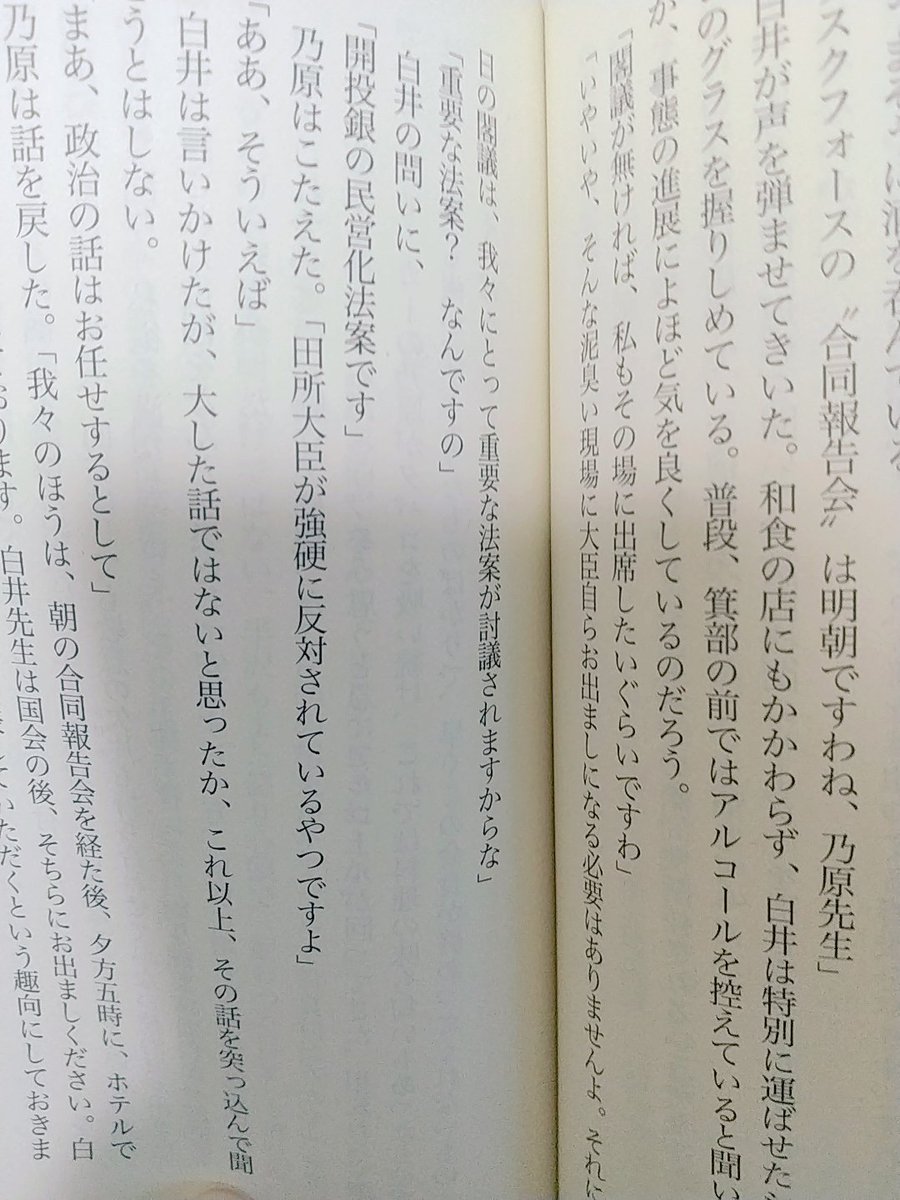 スクフォースの〝合同報告会〟は明朝ですわね、乃原先生」
白井が声を弾ませてきいた。和食の店にもかかわらず、白井は特別に運ばせた
のグラスを握りしめている。普段、箕部の前ではアルコールを控えていると聞い
か、事態の進展によほど気を良くしているのだろう。
「閣議が無ければ、私もその場に出席したいぐらいですわ」
「いやいや、そんな泥臭い現場に大臣自らお出ましになる必要はありませんよ。それに
日の閣議は、我々にとって重要な法案が討議されますからな」
「重要な法案？　なんですの」
白井の問いに、
「開投銀の民営化法案です」
乃原はこたえた。「田所大臣が強硬に反対されているやつですよ」
「ああ、そういえば」
白井は言いかけたが、大した話ではないと思ったか、これ以上、その話を突っ込んで聞
うとはしない。
まあ、政治の話はお任せするとして」
乃原は話を戻した。「我々のほうは、朝の合同報告会を経た後、夕方五時に、ホテルで
おります。白井先生は国会の後、そちらにお出ましください。白
いただくという趣向にしておきま